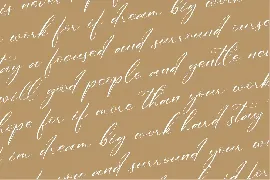 is never
work for if dream. big work
stay a focused and surround yourse
will good people and gentle never
hope for if more than your work
if im dream. big work hard stay
you and surround your wo